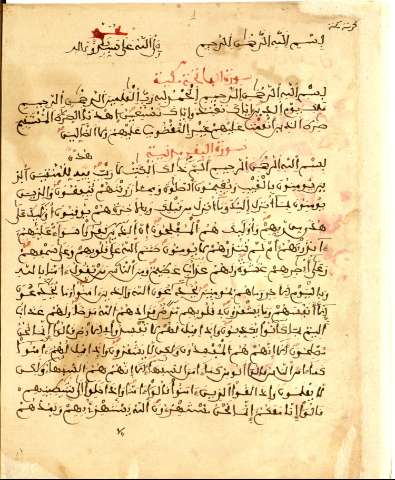 بسم الله الرحمن الرحيم صلى الله على سيدنا محمد وآله
سورة الفاتحة مكية
بسم الله الرحمن الرحيم الحمد لله رب العلمين الرحمن الرحيم
ملك يوم الدين إياك نعبد وإياك نستعين اهدنا الصراط المستقيم
صراط الذين أنعمت عليهم غير المغضوب عليهم ولا الضالين
سورة البقرة مدنية
بسم الله الرحمن الرحيم الم ذلك الكتب لا ريب فيه هدى للمتقين الذ
ين يومنون بالغيب ويقيمون الصلوة ومما رزقنهم ينفقون والذين
يومنون بما أنزل إليك وما أنزل من قبلك وبالاخرة هم يوقنون أوليك على
هدى من ربهم وأوليك هم المفلحون إن الذين كفروا سواء عليهم
ءانذرتهم أم لم تنذرهم لا يومنون ختم الله على قلوبهم وعلى سمعهم
وعلى أبصرهم غشوة ولهم عذاب عظيم ومن الناس من يقول ءامنا بالله
وباليوم الاخر وما هم بمومنين يخدعون الله والذين ءامنوا وما يخدعون
إلا أنفسهم وما يشعرون في قلوبهم مرض فزادهم الله مرضا ولهم عذاب
أليم بما كانوا يكذبون وإذا قيل لهم لا تفسدوا في الارض قالوا إنما نحن
مصلحون ألا إنهم هم المفسدون ولكن لا يشعرون وإذا قيل لهم ءامنوا
كما ءامن الناس قالوا أنومن كما ءامن السفهاء ألا إنهم هم السفهاء ولكن
لا يعلمون وإذا لقوا الذين ءامنوا قالوا ءامنا وإذا خلوا إلى شيطينهم
قالوا إنا معكم إنما نحن مستهزءون الله يستهزئ بهم ويمدهم